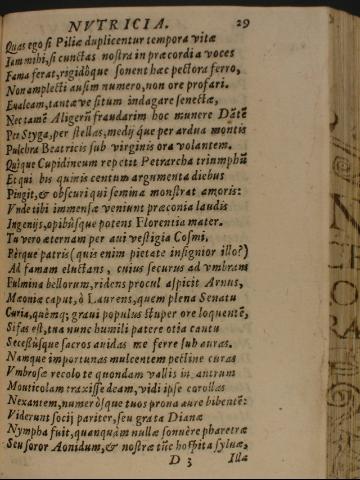 NVTRICIA. 29
Quas ego si Piliæ duplicentur tempora vitæ
Iam mihi, si cunctas nostra in præcordia voces
Fama ferat, rigidòque sonent hæc pectora ferro,
Non amplecti ausim numero, non ore profari.
Eualeam, tantæve situm indagare senectæ,
Nec tamẽ Aligerũ fraudarim hoc munere Dãtẽ
Per Styga, per stellas, medijq́ue per ardua montis
Pulchra Beatricis sub virginis ora volantem.
Quique Cupidineum repetit Petrarcha triumphũ
Et qui bis quinis centum argumenta diebus
Pingit, & obscuri qui semina monstrat amoris:
Vnde tibi immensæ veniunt præconia laudis
Ingenijs, opibúsque potens Florentia mater.
Tu vero æternam per aui vestigia Cosmi,
Pérque patris (quis enim pietate insignior illo?)
Ad famam eluctans, cuius securus ad vmbram
Fulmina bellorum, ridens procul aspicit Arnus,
Mæoniæ caput, ò Laurens, quem plena Senatu
Curia, quémq; graui populus stuper ore loquentẽ,
Si fas est, tua nunc humili patere otia cantu
Secessúsque sacros auidas me ferre sub auras.
Namque importunas mulcentem pectine curas
Vmbrosæ recolo te quondam vallis in antrum
Monticolam traxisse deam, vidi ipse corollas
Nexantem, numerósque tuos prona aure bibentẽ:
Viderunt socij pariter, seu grata Dianæ
Nympha fuit, quanquàm nullæ sonuêre pharetræ
Seu soror Aonidum, & nostræ tũc hospita syluæ,
D 3 Illa